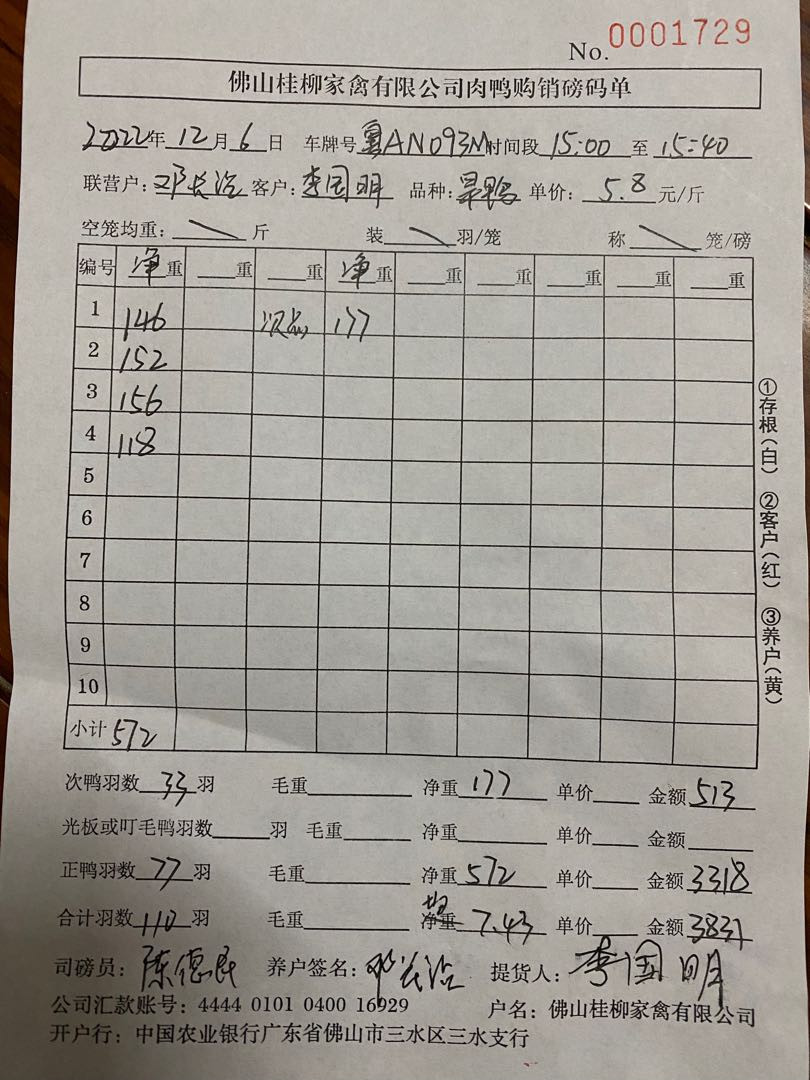 No. 0001729
佛山桂柳家禽有限公司肉鸭购销磅码单
2022年 12 月 6 日 车牌号 粤AN093M 时间段 15:00 至 15:40
联营户: 邓长治 客户: 李国明 品种: 旱鸭 单价: 5.8 元/斤
空笼均重: 斤 装 羽/笼 称 笼/磅
编号 净重 重 重 净重 重 重 重 重 重
1 146 次品 177
2 152
3 156
4 118
5
6
7
8
9
10
小计 572
次鸭羽数 33 羽 毛重 净重 177 单价 金额 513
光板或叮毛鸭羽数 羽 毛重 净重 单价 金额
正鸭羽数 77 羽 毛重 净重 572 单价 金额 3318
合计羽数 110 羽 毛重 均重 7.43 单价 金额 3831
司磅员: 陈德民 养户签名: 邓长治 提货人: 李国明
公司汇款账号: 4444 0101 0400 16929 户名: 佛山桂柳家禽有限公司
开户行: 中国农业银行广东省佛山市三水区三水支行
①存根(白) ②客户(红) ③养户(黄)